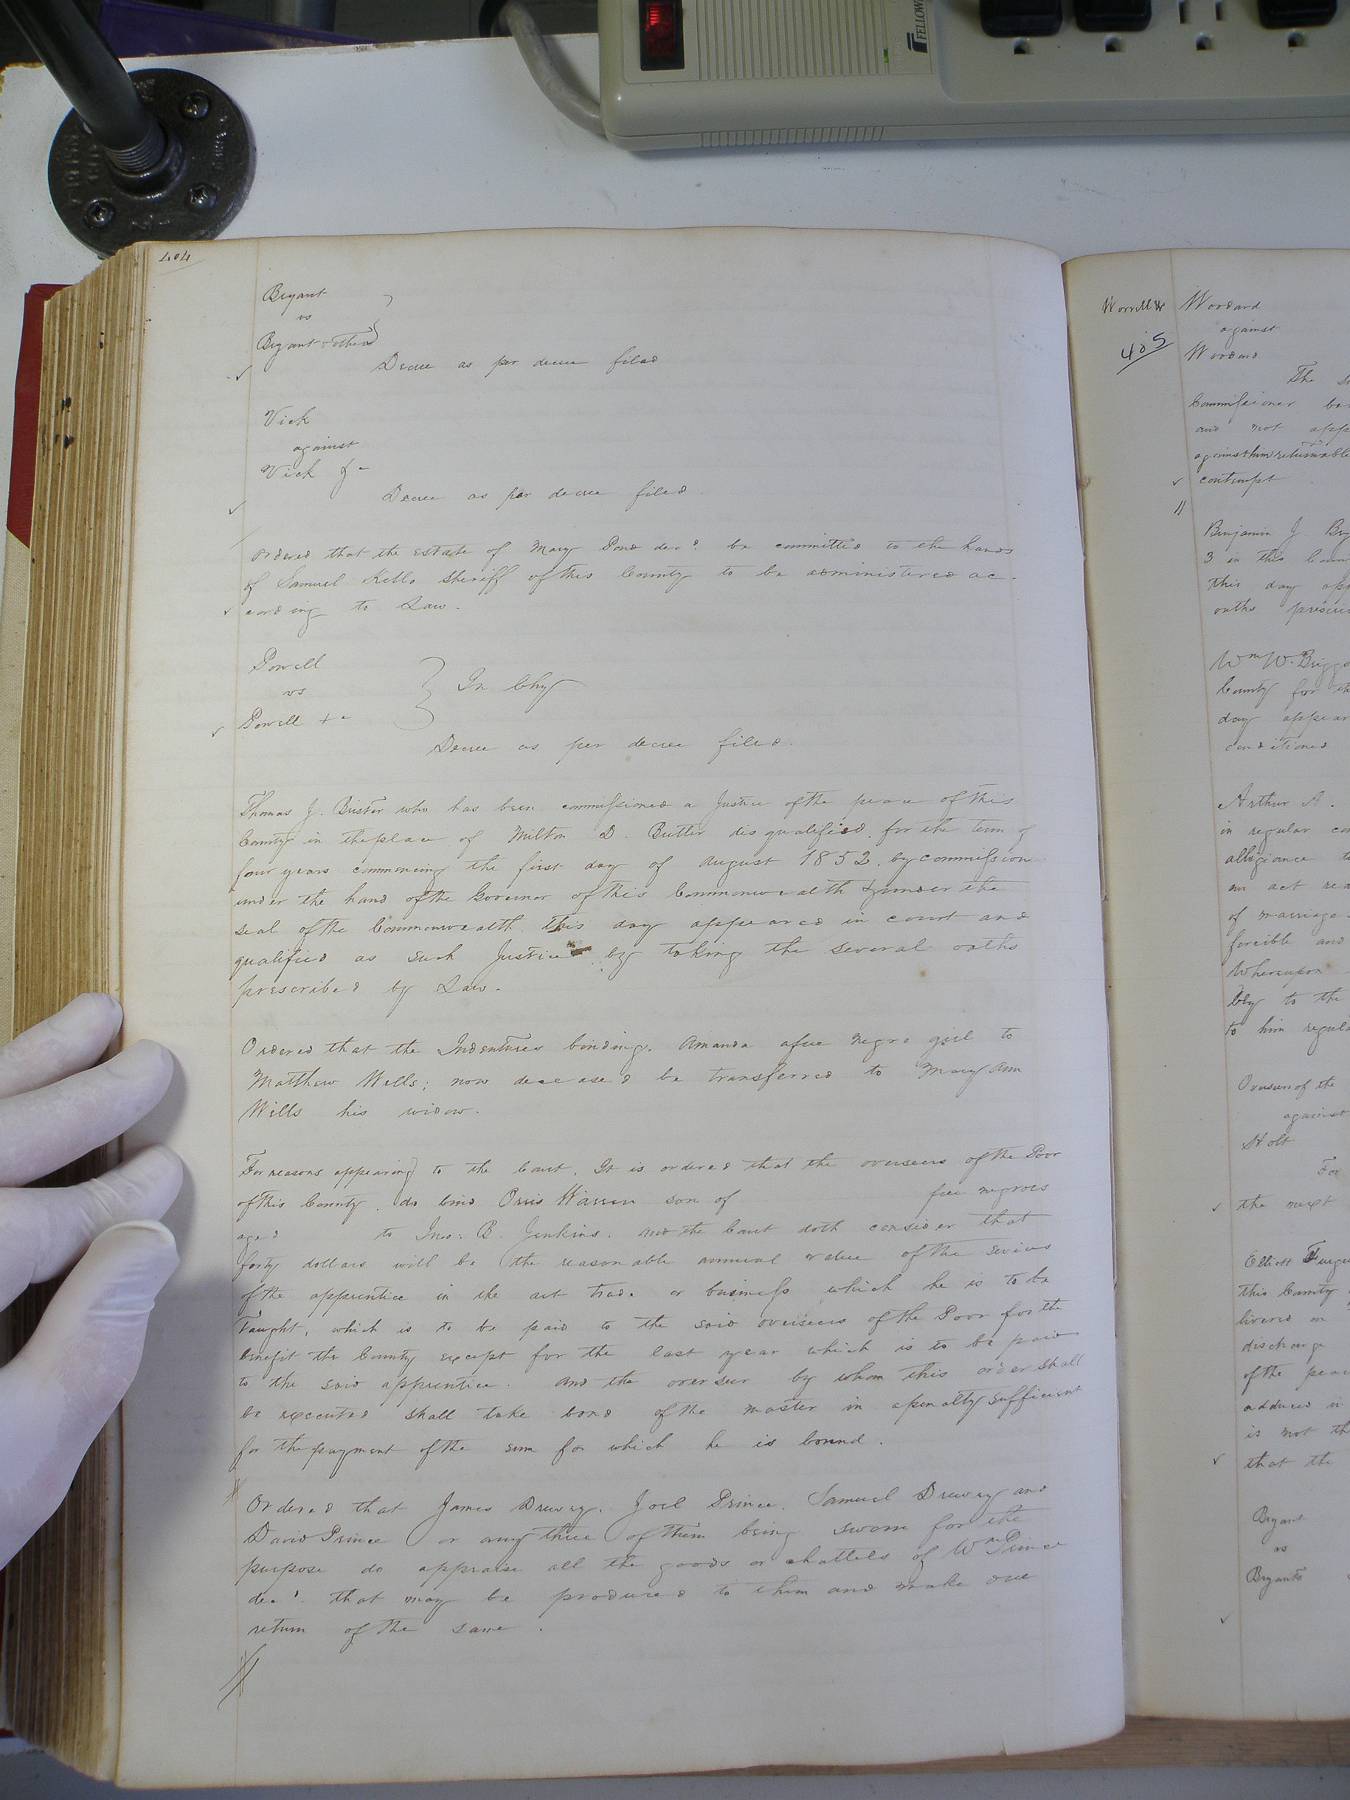 FELLOWES
404
Bryant
vs
Bryant & others
Decree as per decree filed
Vick
against
Vick &c
Decree as per decree filed.
Ordered that the estate of Mary Pond decd. be committed to the hands
of Samuel Kello Sheriff of this County to be administered ac-
cording to Law.
Powell
vs
Powell &c
In Chy
Decree as per decree filed.
Thomas J. Brister who has been commissioned a Justice of the peace of this
County in the place of Milton D. Butler disqualified, for the term of
four years commencing the first day of August 1852, by commission
under the hand of the Governor of this Commonwealth & under the
seal of the Commonwealth this day appeared in court and
qualified as such Justice by taking the several oaths
prescribed by Law.
Ordered that the Indentures binding Amanda a free negro girl to
Matthew Wills; now deceased be transferred to Mary Ann
Wills his widow.
For reasons appearing to the Court, It is ordered that the overseers of the Poor
of this County, do bind Orris Warren son of free negroes
aged to Jno. B. Jenkins. And the Court doth consider that
forty dollars will be the reasonable annual value of the servies
of the apprentice in the art trade or business which he is to be
Taught, which is to be paid to the said overseers of the Poor for the
benefit the County except for the last year which is to be paid
to the said apprentice. And the overseer by whom this order shall
be executed shall take bond of the master in a penalty sufficient
for the payment of the sum for which he is bound.
Ordered that James Drewry, Joel Prince, Samuel Drewry and
David Prince or any three of them being sworn for the
purpose do appraise all the goods or chattels of Wm Prince
decd. that may be produced to them and make due
return of the same.
Worrell &
405
Woodard
against
Woodard
The
Commissioner
and not
against him returnable
contempt
Benjamin J.
3 in this
this day
oaths
Wm W. Briggs
County for
day appear
conditioned
Arthur A.
in regular
alligiance
an act
of marriage
forcible and
Whereupon
bly to the
to him
Overseers of the
against
Holt
For
the next
Elliott
this County
livered
discharge
of the
adduced in
is not
that the
Bryant
vs
Bryants